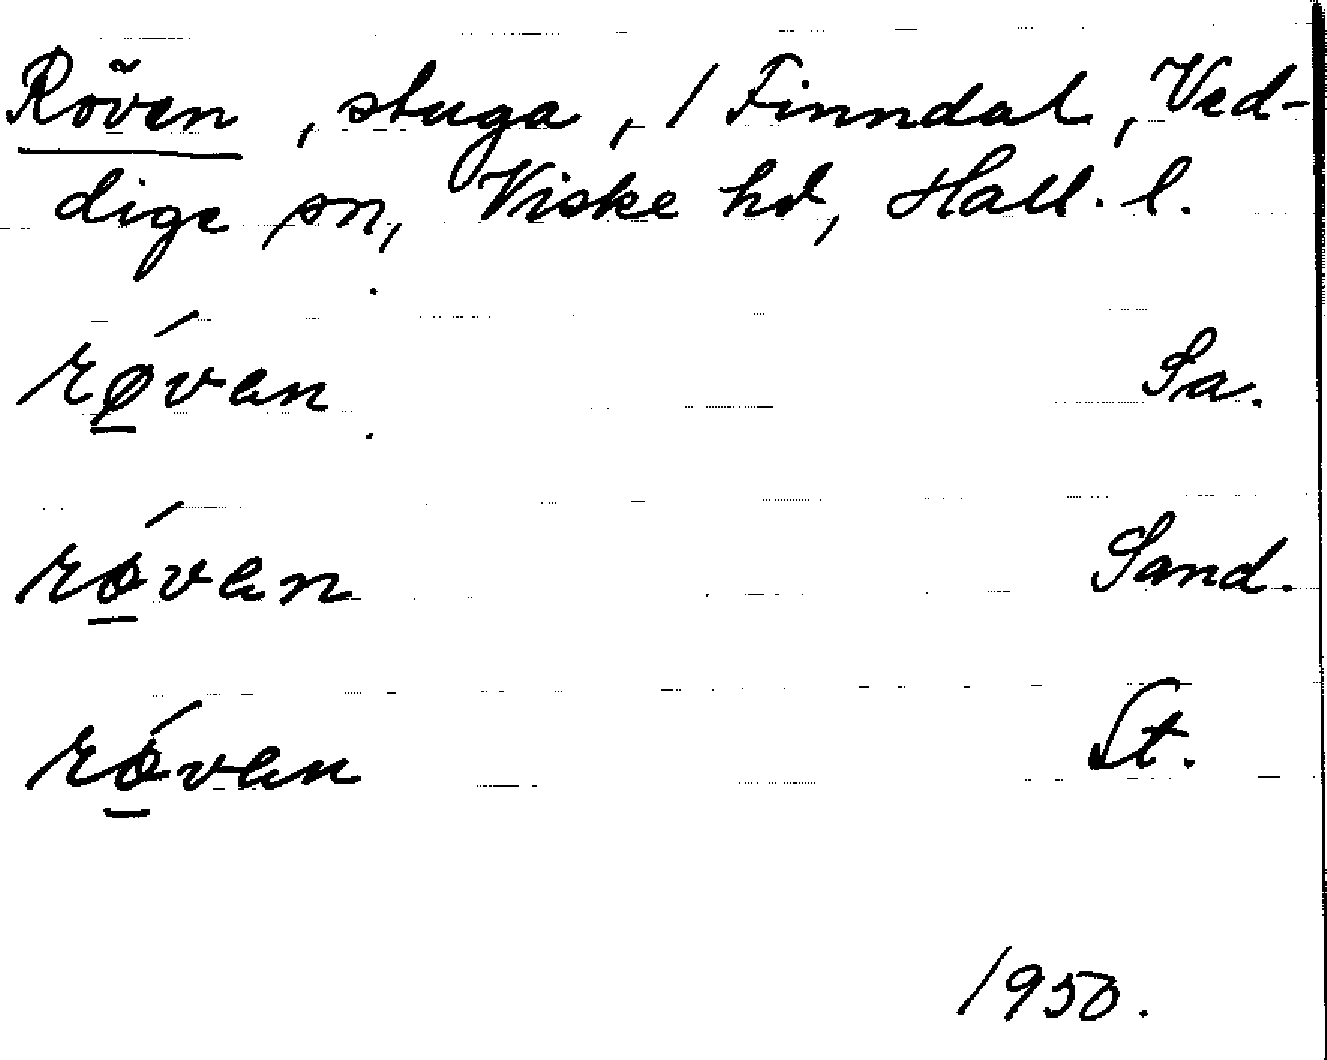 Röven, stuga, / Finndal, Ved-
dige sn, Viske hd, Hall. l.
rǿvan Sa.
rǿvan Sand.
rǿvan St.
1950.